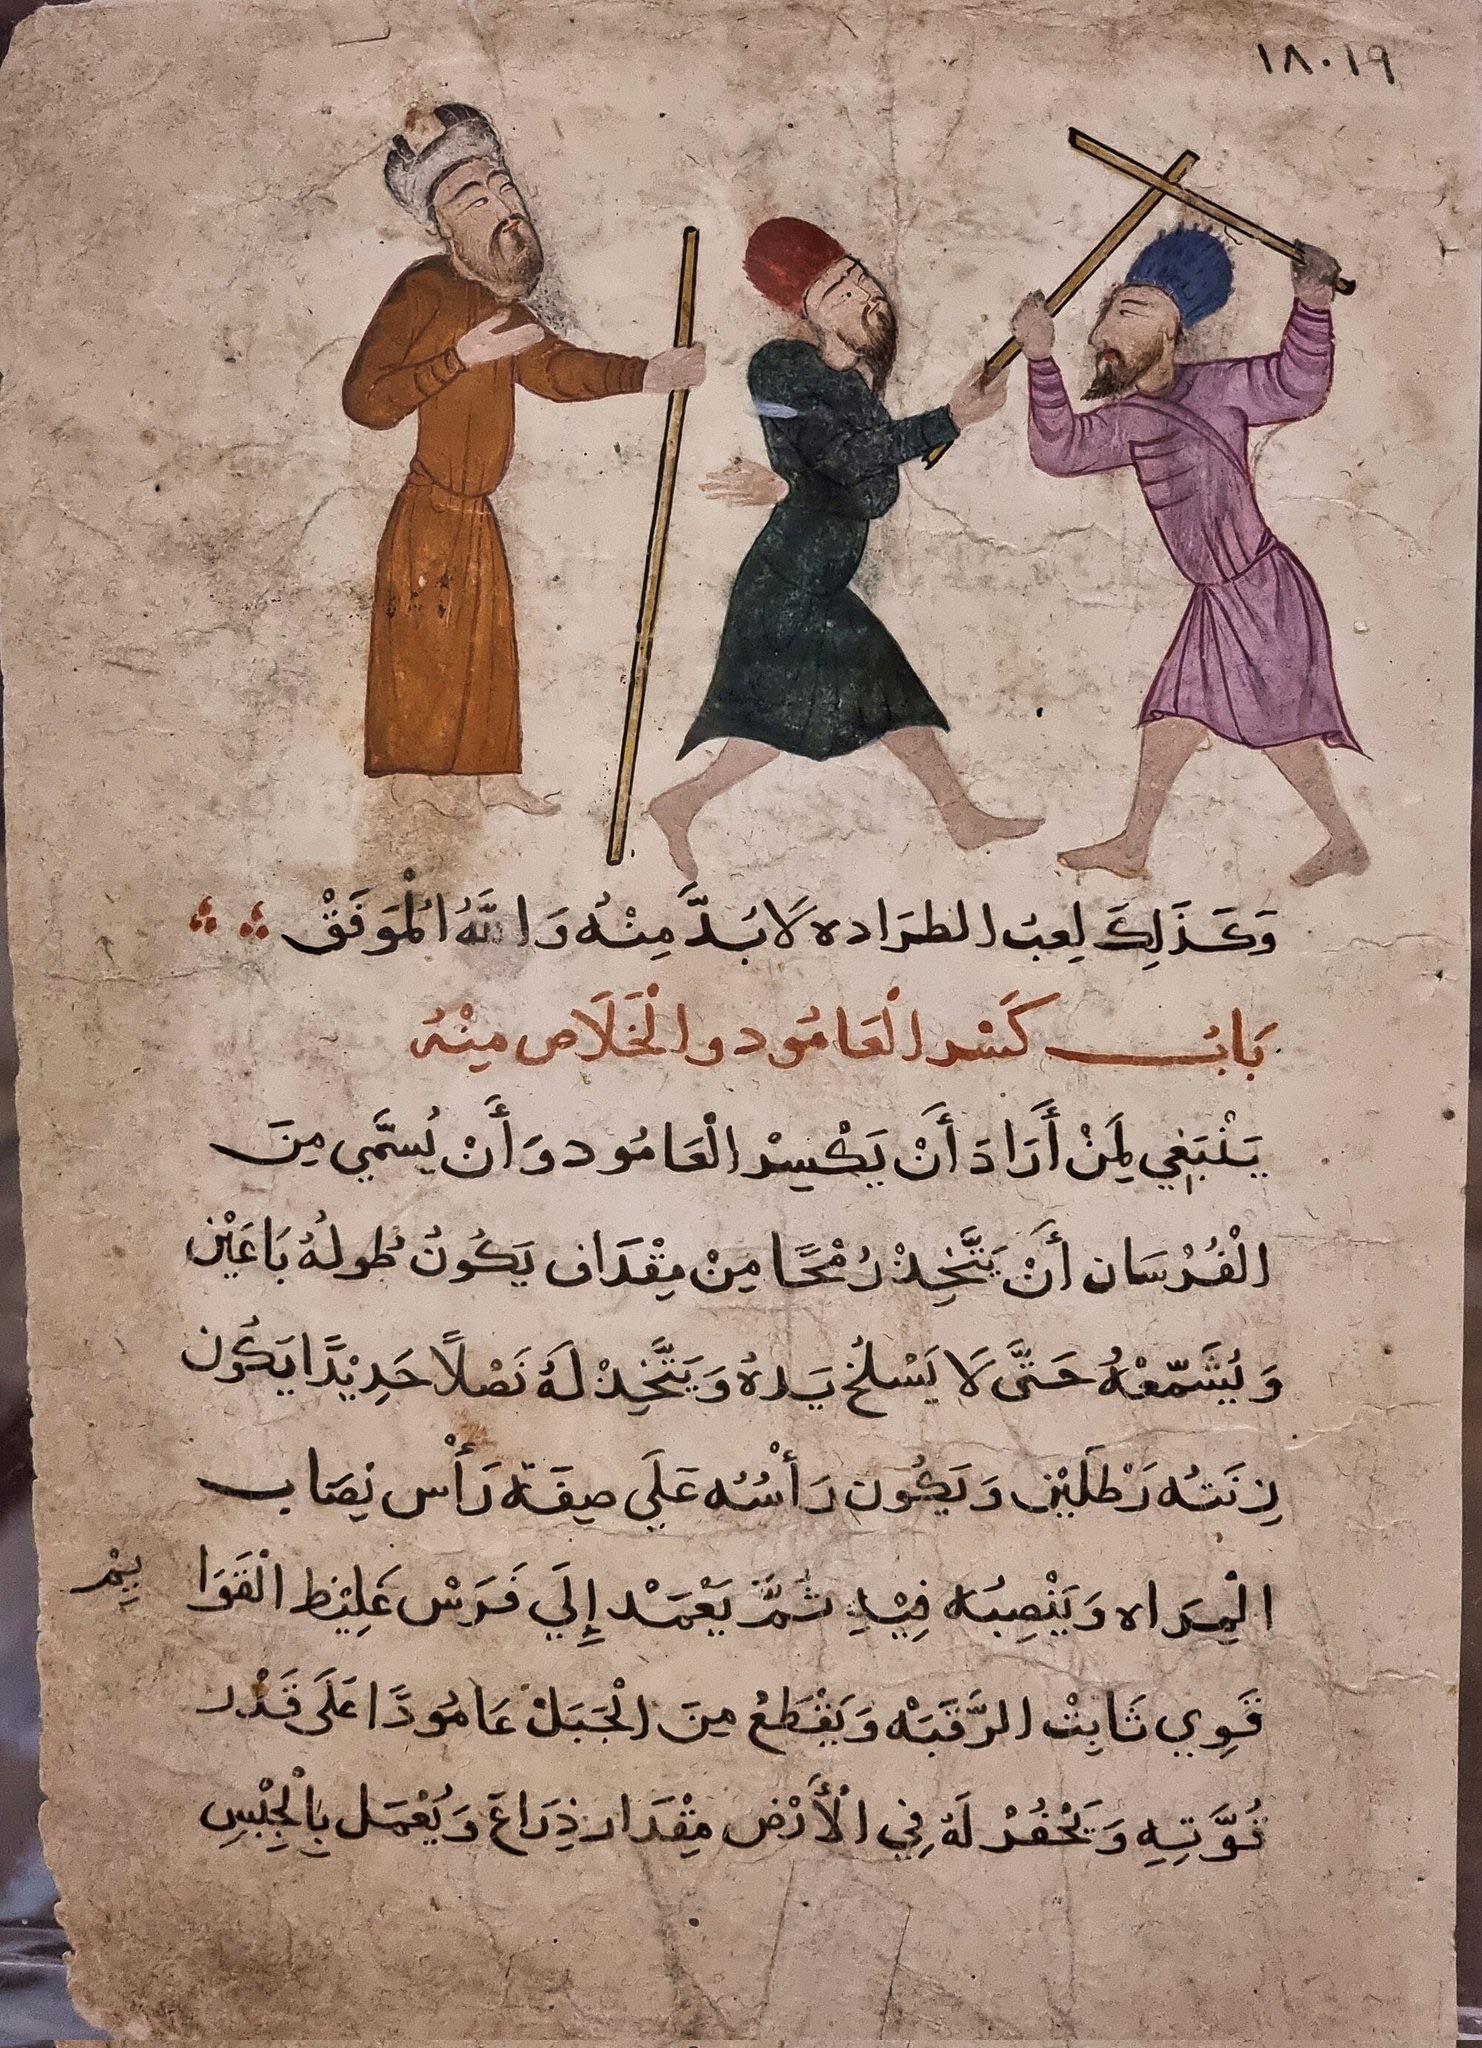 ١٨٠١٩
وَكَذَلِكَ لِعبُ الطرَاده لَا بُدَّ مِنْهُ وَاللَّهُ الْمُوَفَقْ
بَابُ كَسْر الْعَامُود والْخَلَاص مِنْهُ
يَنْبَغِي لِمَنْ أَرَادَ أَنْ يَكْسِرْ الْعَامُود وَأَنْ يُسَمَّي مِنَ
الْفُرْسَان أَنْ يَتَّخِذْ رُمْحًا مِنْ مِقْدَاف يَكُونُ طُولهُ بَاعَيْن
وَيُشَمّعْهُ حَتَّى لَا يَسْلخُ يَدهُ وَيَتَّخِذْ لَهُ نَصْلًا حَدِيْدًا يَكُون
زِنَتُه رَطْلَيْن وَيَكُون رَأْسُه عَلَي صِفَة رَأْس نِصَاب
الْمِرَاه وَيَنْصِبُه فِيْهِ ثُمَّ يَعْمَدْ إِلَي فَرَسْ غَلِيْظ الْقَوَا يِمْ
قَوِي ثَابِتْ الرَّقَبَهْ وَيَقْطَعْ مِنَ الْجَبَلْ عَامُودًا عَلَى قَدْر
قُوَّتِهِ وَيَحْفُرْ لَهُ فِي الْأَرْض مِقْدَار ذِرَاعَ وَيُعْمَل بِالْجِبْسِ